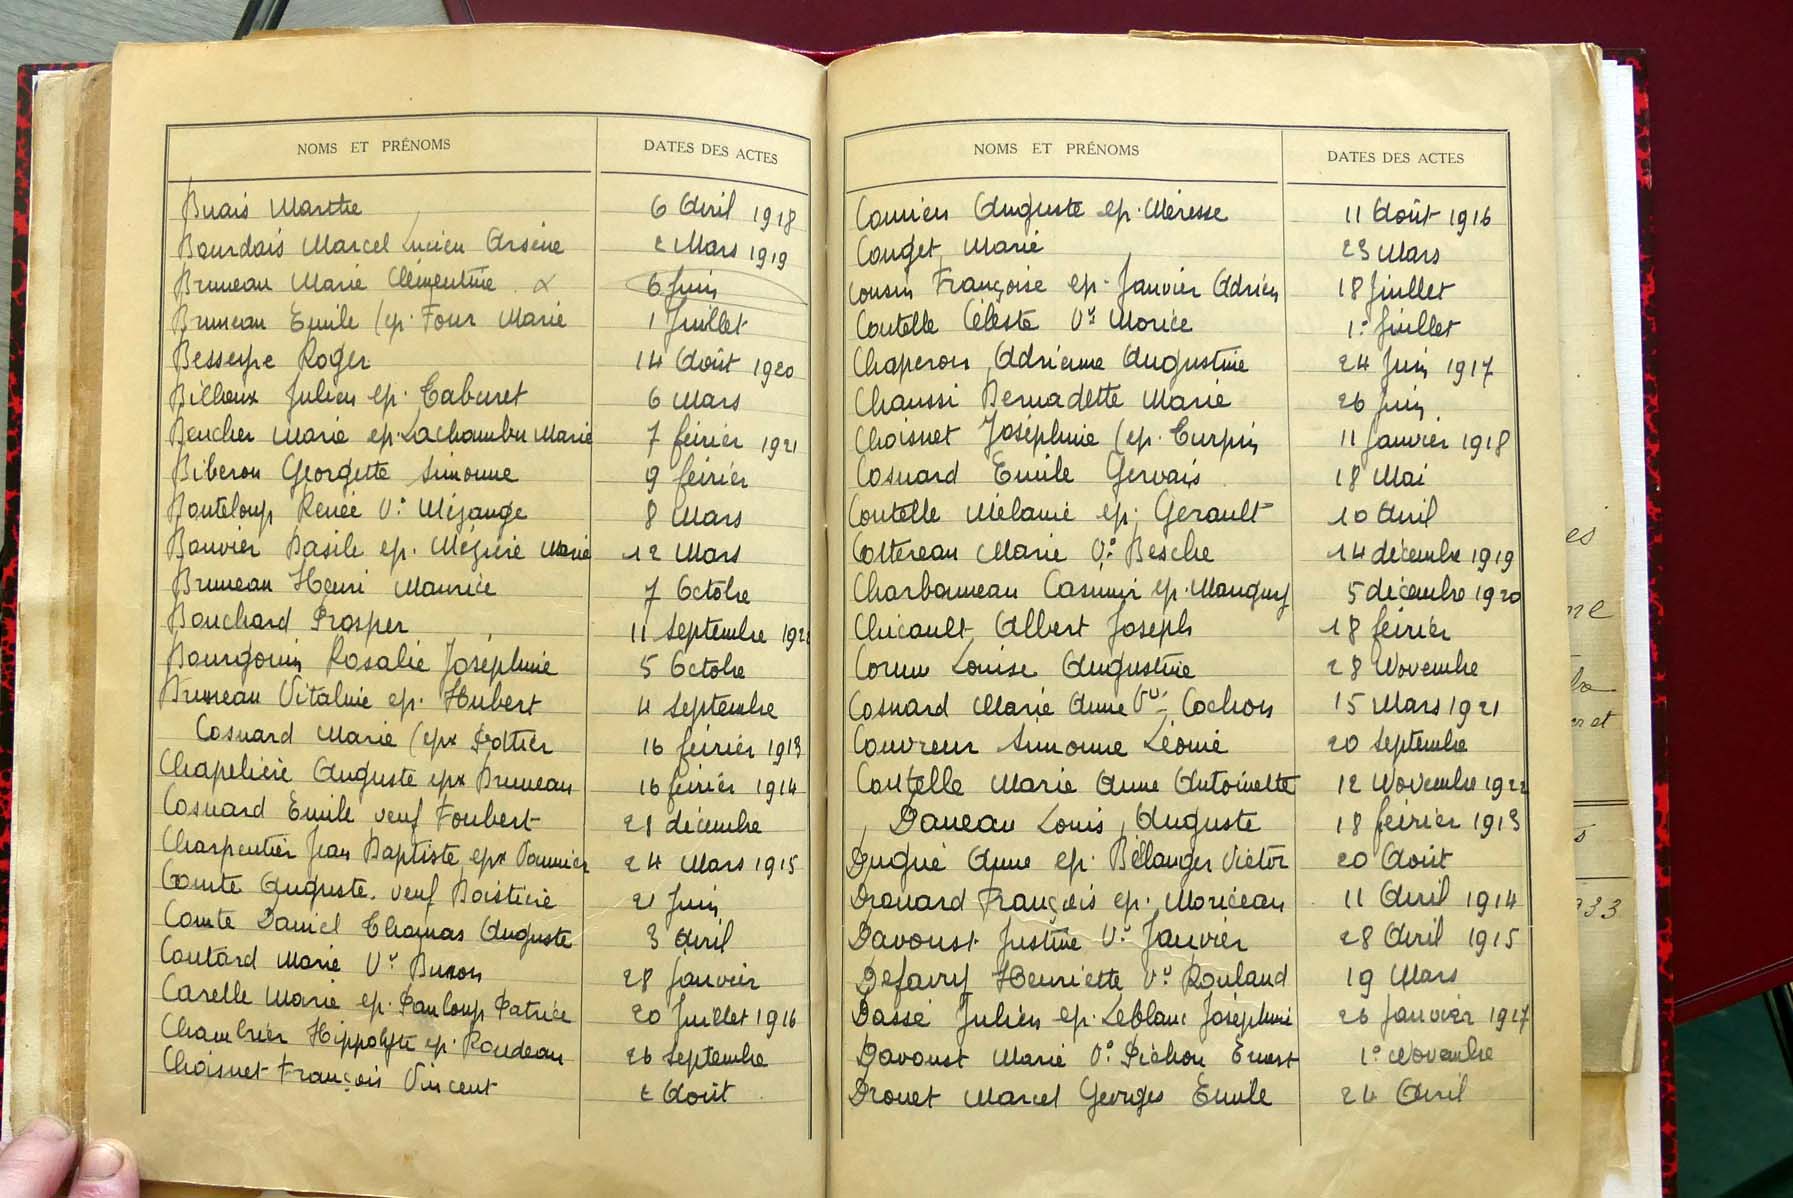 NOMS ET PRÉNOMS DATES DES ACTES
Buais Marthe 6 Avril 1918
Bourdais Marcel Lucien Arsène 2 Mars 1919
Bruneau Marie Clémentine 6 Juin
Bruneau Emile (ep. Four Marie 1 Juillet
Roger 14 Août 1920
Billeux Julien ep. Cabaret 6 Mars
Marie ep. Marie 7 février 1921
Biberon Georgette Simonne 9 février
Bouteloup Renée Ve Mézange 8 Mars
Bouvier Basile ep. Marie 12 Mars
Bruneau Henri Maurice 7 Octobre
Bouchard Prosper 11 Septembre
Bourgouin Rosalie Joséphine 5 Octobre
Bruneau Vitaline ep. Hubert 4 Septembre
Cosnard Marie (epx Pottier 16 février 1913
Chapelière Auguste epx Bruneau 16 février 1914
Cosnard Emile veuf Foubert 21 décembre
Charpentier Jean Baptiste epx 24 Mars 1915
Comte Auguste. veuf 21 Juin
Comte Daniel Thomas Auguste 3 Avril
Coutard Marie Ve Buron 28 Janvier
Carelle Marie ep. Pauloup Patrice 20 Juillet 1916
Chambrier Hippolyte ep. Rondeau 26 Septembre
Choisnet François Vincent 2 Août
NOMS ET PRÉNOMS DATES DES ACTES
Auguste ep. Méresse 11 Août 1916
Couget Marie 23 Mars
Cousin Françoise ep. Janvier Adrien 18 Juillet
Coutelle Céleste Ve Morice 1° Juillet
Chaperon Adrienne Augustine 24 Juin 1917
Chaussi Bernadette Marie 26 Juin
Choisnet Joséphine (ep. Turpin 11 Janvier 1918
Cosnard Emile Gervais 18 Mai
Coutelle Mélanie ep. Gerault 10 Avril
Cottereau Marie Ve Besche 14 décembre 1919
Charbonneau Casimir ep. 5 décembre 1920
Chicault Albert Joseph 18 février
Louise Augustine 28 Novembre
Cosnard Marie Anne Ve Cochon 15 Mars 1921
Couvreur Simonne Léonie 20 Septembre
Coutelle Marie Anne Antoinette 12 Novembre 1922
Daneau Louis Auguste 18 février 1913
Dugué Anne ep. Bélanger Victor 20 Août
Drouard François ep. Moriceau 11 Avril 1914
Davoust Justine Ve Janvier 28 Avril 1915
Defavry Henriette Ve Rouland 19 Mars
Dassé Julien ep. Leblanc Joséphine 26 Janvier 1917
Davoust Marie Ve Pichon Ernest 1° Novembre
Drouet Marcel Georges Emile 24 Avril
933